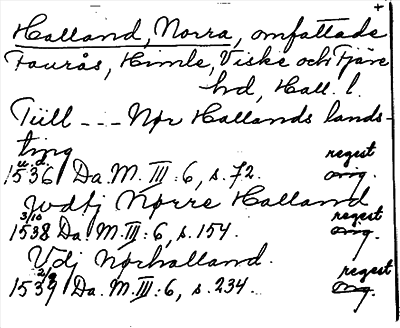 +
Halland, Norra, omfattade
Faurås, Himle, Viske och Fjäre
hrd, Hall. l.
Tiill --- Nør Hallands lands-
ting
u.d. regest
1536 Da. M. III: 6, s. 72. orig.
wdtj Nørre Halland
3/10 regest
1538 Da. M. III: 6, s. 154. orig.
Vdj Nørhalland.
regest
1539 Da. M. III: 6, s. 234. orig.